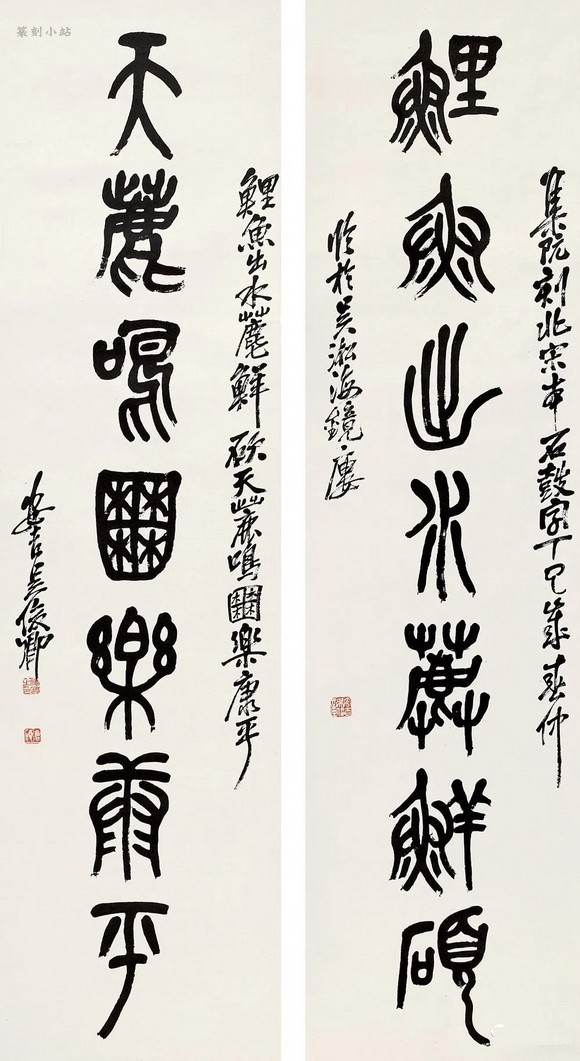 鯉魚出水鮮碩
集阮刻北宋本石鼓字丁巳歲春仲
吳淞海鏡廔
天鹿鳴囿樂康平
鯉魚出水鮮碩天鹿鳴囿樂康平
安吉吳俊卿
篆刻小站